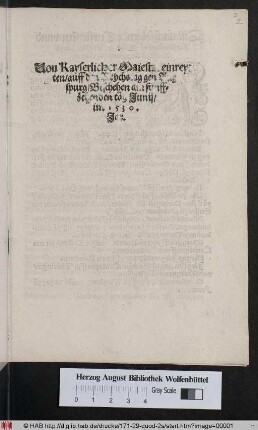 Von Kayserlicher Maiestat einrey-
ten/auff den Reychstag gen Aug
spurg/Beschehen am funff-
zehenden tag Junij/
im. 1530.
Jar.
Herzog August Bibliothek Wolfenbüttel
Gray Scale
0 1 2 3 4
© HAB http://diglib.hab.de/drucke/171-29-quod-2s/start.htm?image=00001